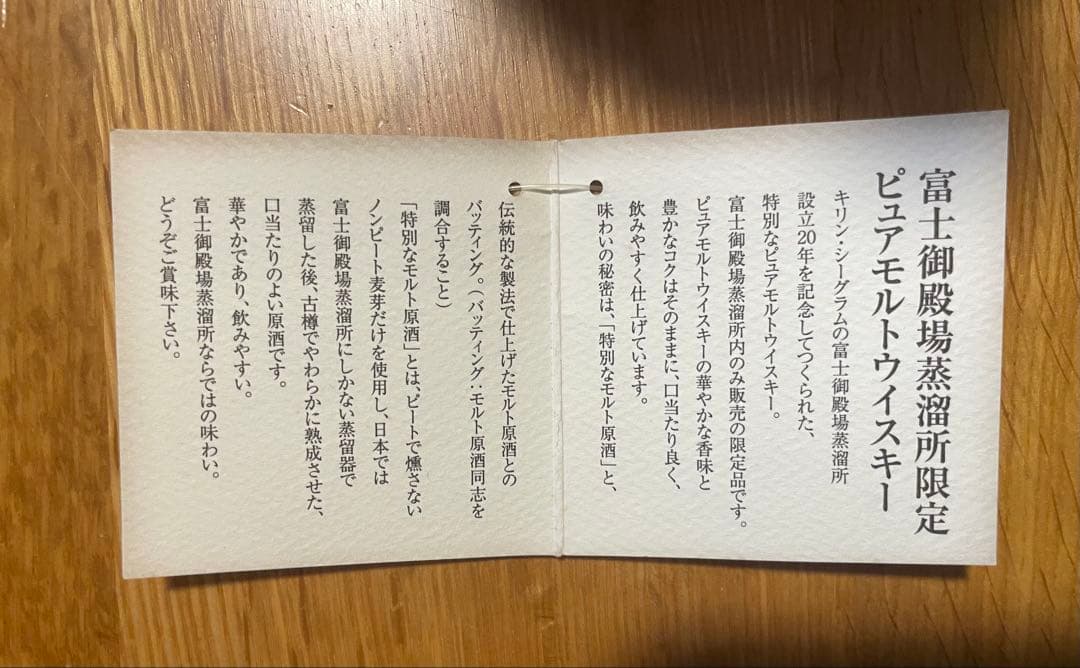 富士御殿場蒸溜所限定
ピュアモルトウイスキー
キリン・シーグラムの富士御殿場蒸溜所
設立20年を記念してつくられた、
特別なピュアモルトウイスキー。
富士御殿場蒸溜所内のみ販売の限定品です。
ピュアモルトウイスキーの華やかな香味と
豊かなコクはそのままに、口当たり良く、
飲みやすく仕上げています。
味わいの秘密は、「特別なモルト原酒」と、
伝統的な製法で仕上げたモルト原酒との
バッティング。(バッティング:モルト原酒同志を
調合すること)
「特別なモルト原酒」とは、ピートで燻さない
ノンピート麦芽だけを使用し、日本では
富士御殿場蒸溜所にしかない蒸留器で
蒸留した後、古樽でやわらかに熟成させた、
口当たりのよい原酒です。
華やかであり、飲みやすい。
富士御殿場蒸溜所ならではの味わい。
どうぞご賞味下さい。